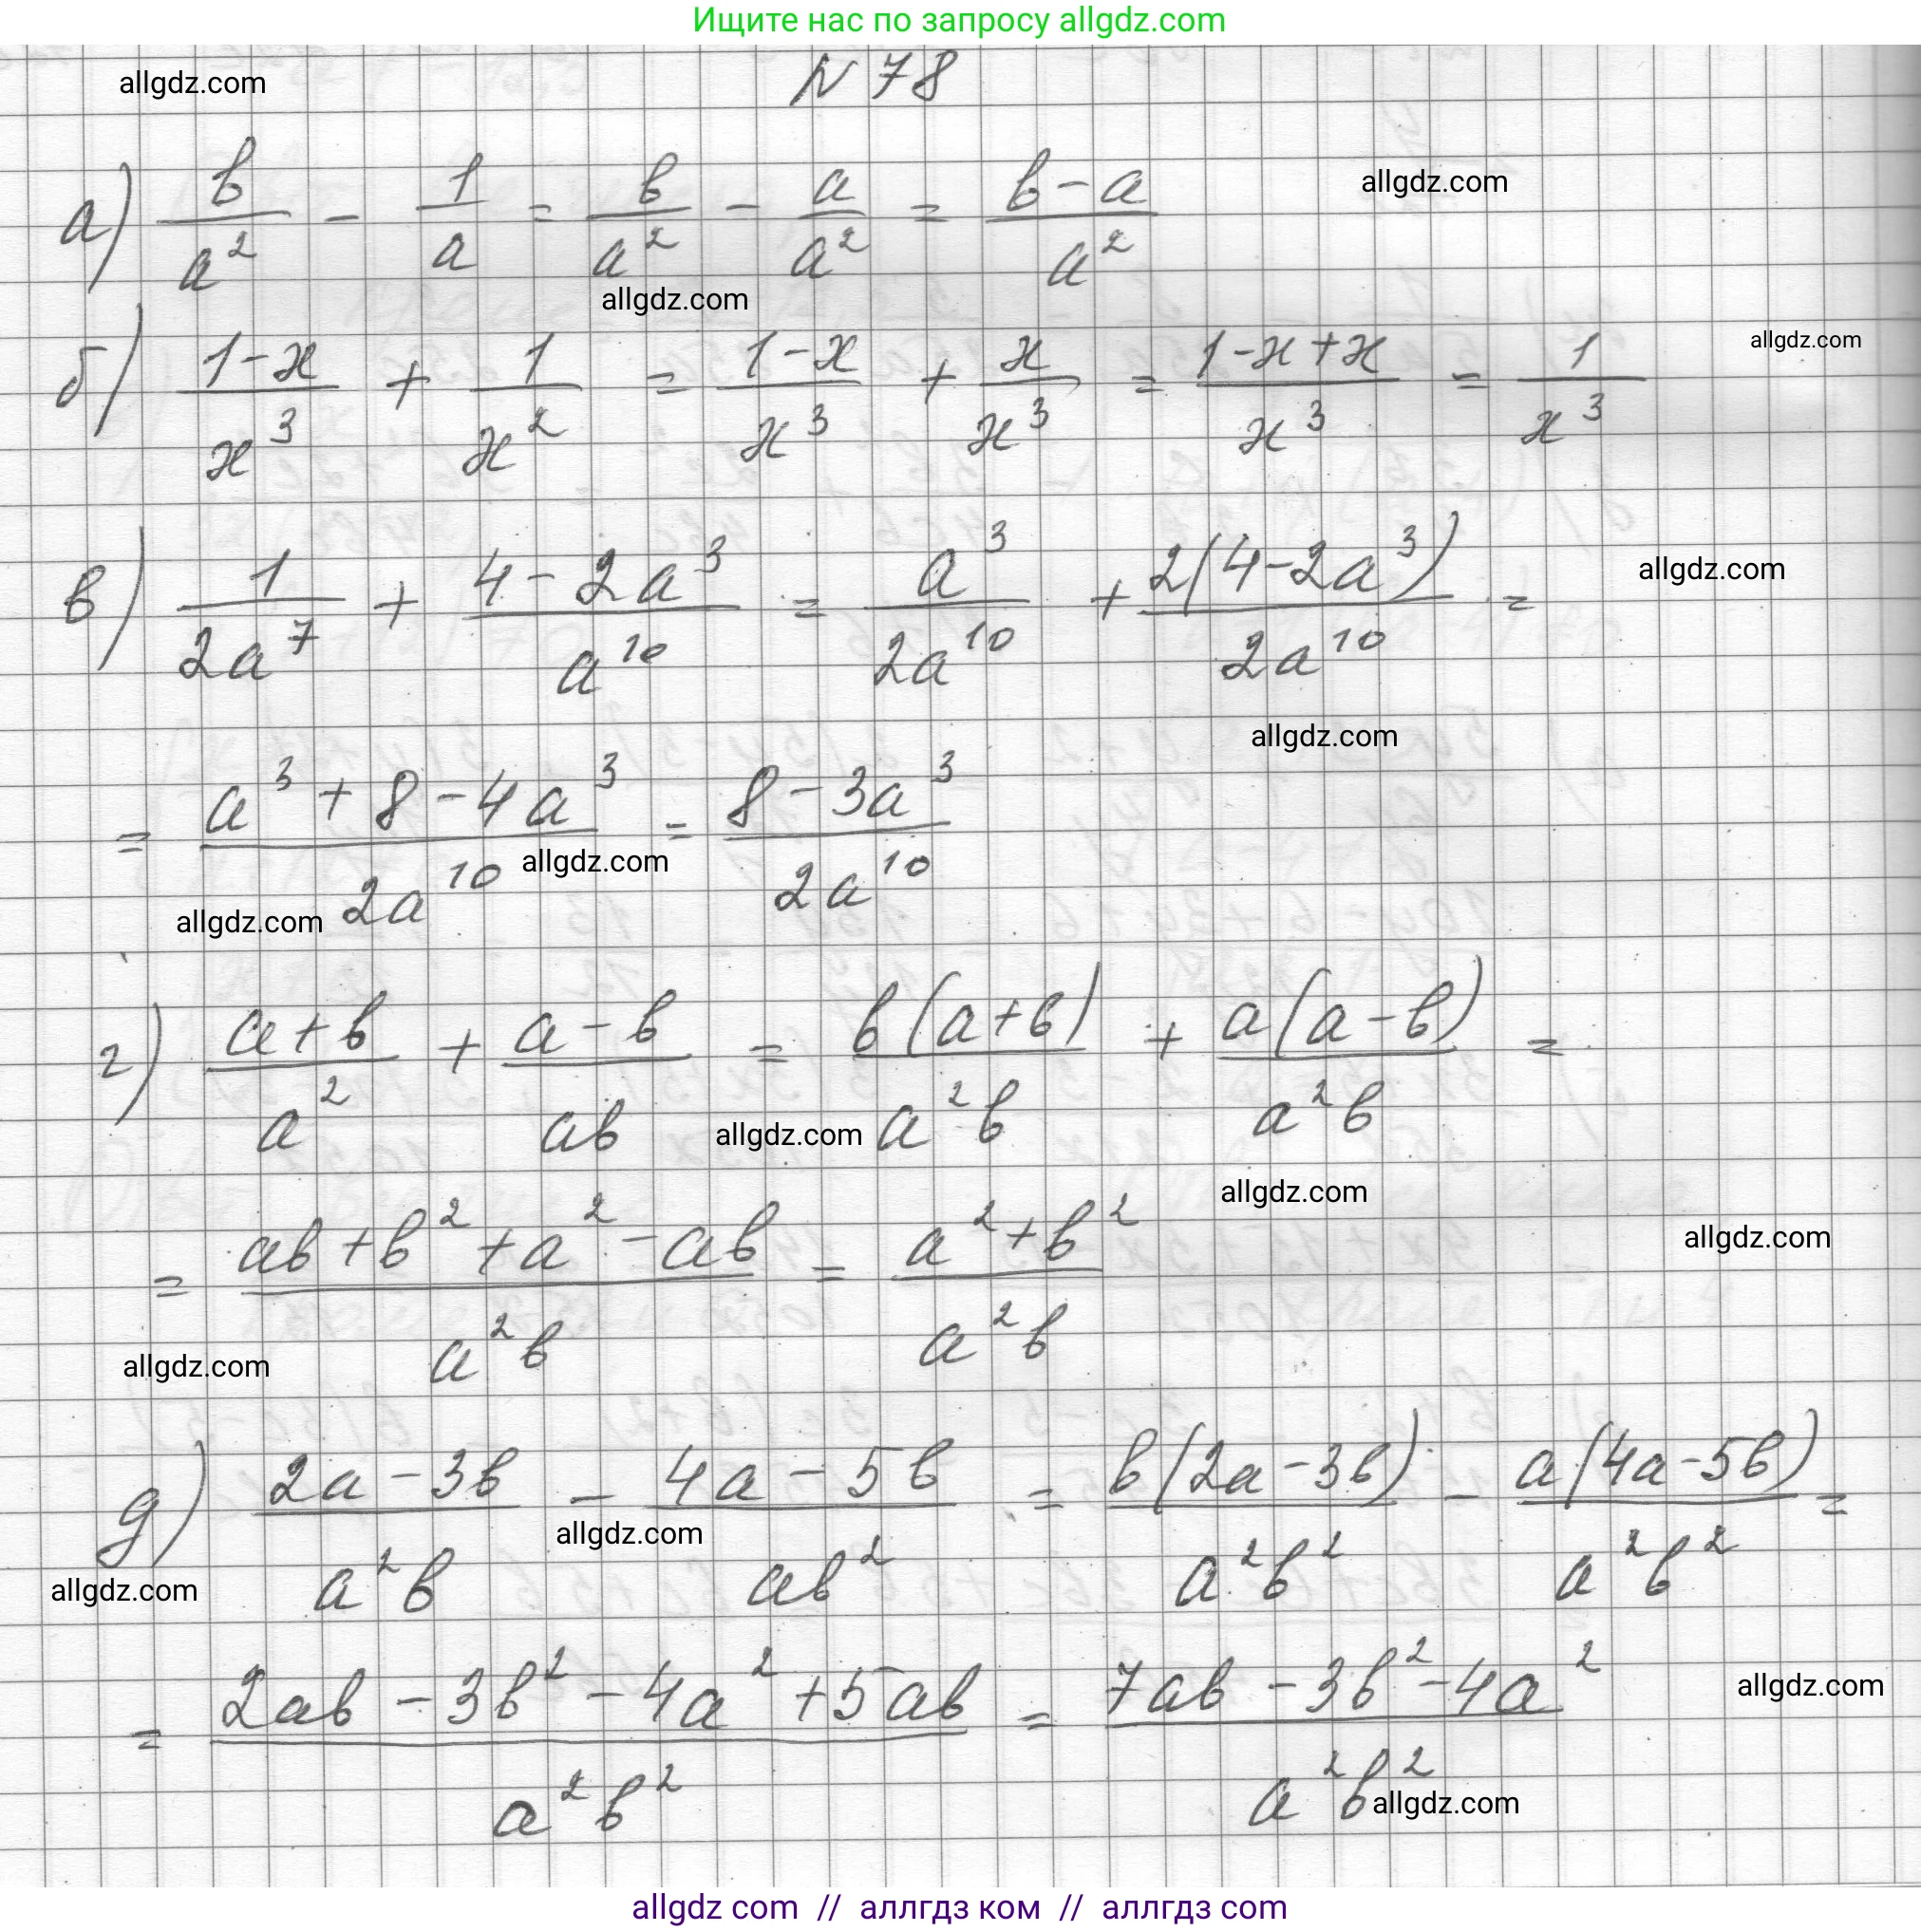 Ищите нас по запросу allgdz.com
allgdz.com
N 78
а) b/a² - 1/a = b/a² - a/a² = (b-a)/a²
allgdz.com
allgdz.com
б) (1-x)/x³ + 1/x² = (1-x)/x³ + x/x³ = (1-x+x)/x³ = 1/x³
allgdz.com
в) 1/(2a⁷) + (4-2a³)/a¹⁰ = a³/(2a¹⁰) + 2(4-2a³)/(2a¹⁰) =
allgdz.com
allgdz.com
= (a³+8-4a³)/(2a¹⁰) = (8-3a³)/(2a¹⁰)
allgdz.com
allgdz.com
г) (a+b)/a² + (a-b)/(ab) = b(a+b)/(a²b) + a(a-b)/(a²b) =
allgdz.com
allgdz.com
= (ab+b²+a²-ab)/(a²b) = (a²+b²)/(a²b)
allgdz.com
allgdz.com
д) (2a-3b)/(a²b) - (4a-5b)/(ab²) = b(2a-3b)/(a²b²) - a(4a-5b)/(a²b²) =
allgdz.com
allgdz.com
= (2ab-3b²-4a²+5ab)/(a²b²) = (7ab-3b²-4a²)/(a²b²)
allgdz.com
allgdz.com
allgdz com // аллгдз ком // аллгдз com